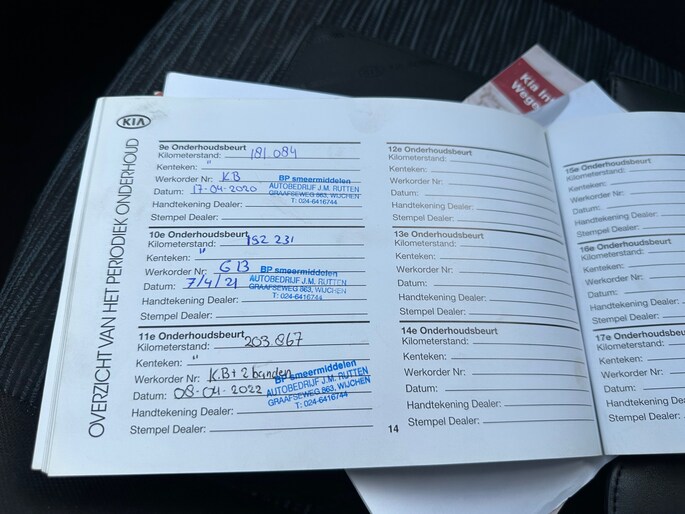 KIA
OVERZICHT VAN HET PERIODIEK ONDERHOUD
9e Onderhoudsbeurt
Kilometerstand: 181 084
Kenteken: "
Werkorder Nr: KB
Datum: 17-04-2020
Handtekening Dealer:
Stempel Dealer:
BP smeermiddelen
AUTOBEDRIJF J.M. RUTTEN
GRAAFSEWEG 863, WIJCHEN
T: 024-6416744
10e Onderhoudsbeurt
Kilometerstand: 192 231
Kenteken: "
Werkorder Nr: GB
Datum: 7/4/21
Handtekening Dealer:
Stempel Dealer:
BP smeermiddelen
AUTOBEDRIJF J.M. RUTTEN
GRAAFSEWEG 863, WIJCHEN
T: 024-6416744
11e Onderhoudsbeurt
Kilometerstand: 203.867
Kenteken: "
Werkorder Nr: K.B + 2 banden
Datum: 08-04-2022
Handtekening Dealer:
Stempel Dealer:
BP smeermiddelen
AUTOBEDRIJF J.M. RUTTEN
GRAAFSEWEG 863, WIJCHEN
T: 024-6416744
12e Onderhoudsbeurt
Kilometerstand:
Kenteken:
Werkorder Nr:
Datum:
Handtekening Dealer:
Stempel Dealer:
13e Onderhoudsbeurt
Kilometerstand:
Kenteken:
Werkorder Nr:
Datum:
Handtekening Dealer:
Stempel Dealer:
14e Onderhoudsbeurt
Kilometerstand:
Kenteken:
Werkorder Nr:
Datum:
Handtekening Dealer:
Stempel Dealer:
14
15e Onderhoudsbeurt
Kilometerstand:
Kenteken:
Werkorder Nr:
Datum:
Handtekening Dealer:
Stempel Dealer:
16e Onderhoudsbeurt
Kilometerstand:
Kenteken:
Werkorder Nr:
Datum:
Handtekening Dealer:
Stempel Dealer:
17e Onderhoudsbeurt
Kilometerstand:
Kenteken:
Werkorder Nr:
Datum:
Handtekening Dealer:
Stempel Dealer:
Kia